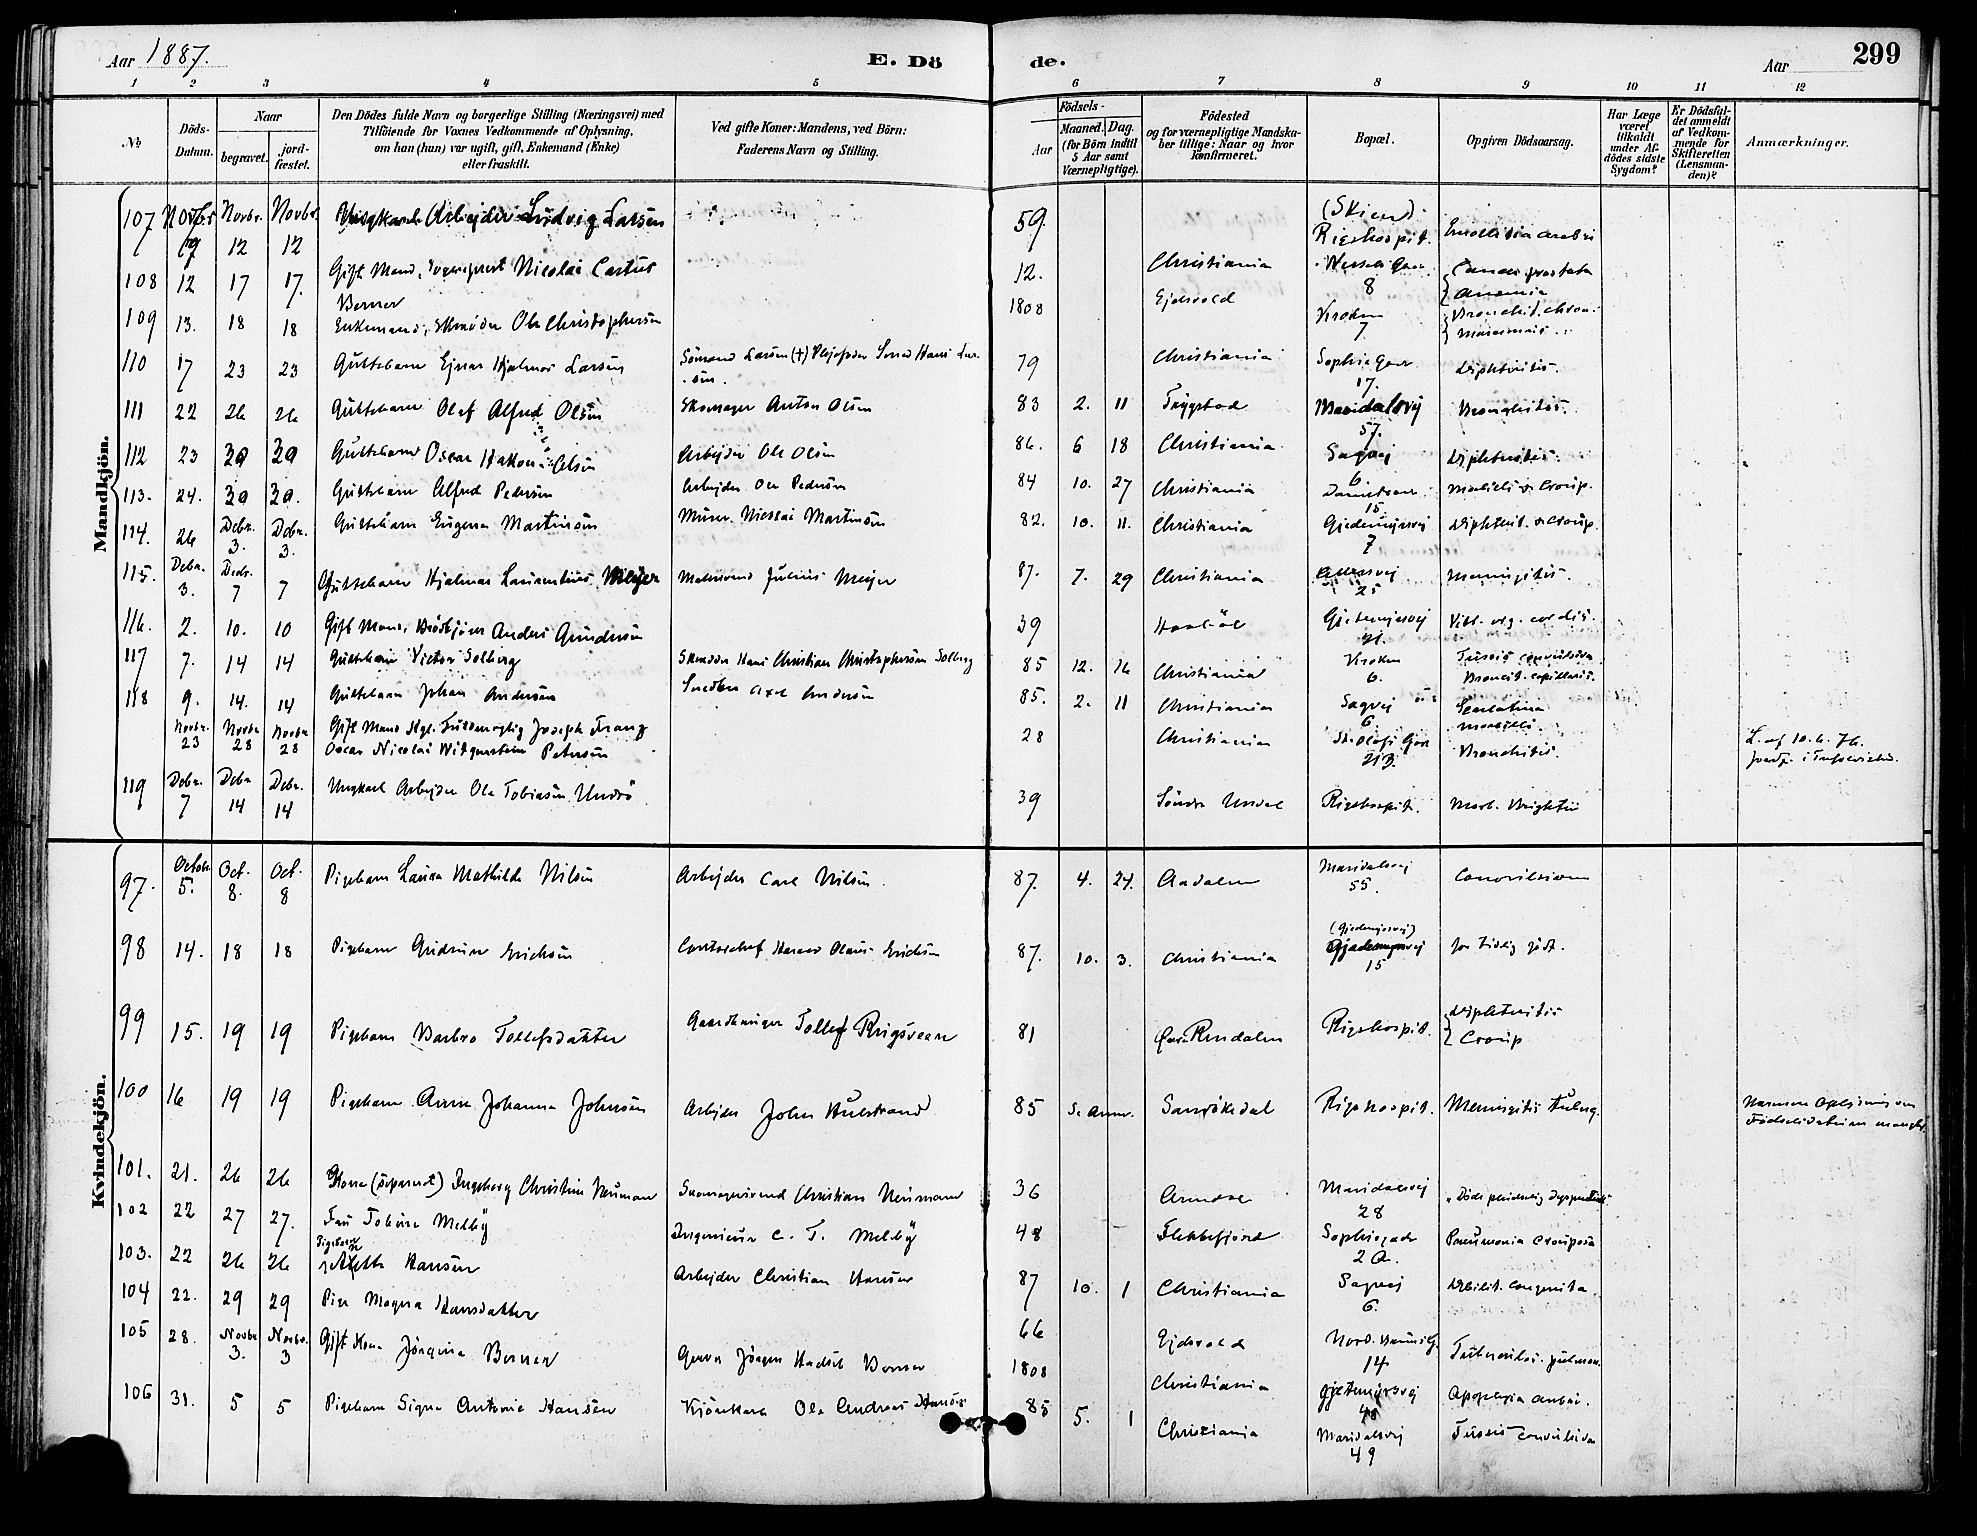 Aar 1887.
E. Dö
de.
Aar
299
1 2 3 4 5 6 7 8 9 10 11 12
No
Döds-Datum.
Naar
begravet.
jord-fæstet.
Den Dödes fulde Navn og borgerlige Stilling (Næringsvei) med
Tilföiende for Voxnes Vedkommende af Oplysning,
om han (hun) var ugift, gift, Enkemand (Enke)
eller fraskilt.
Ved gifte Koner: Mandens, ved Börn:
Faderens Navn og Stilling.
Födsels-
Aar
Maaned. Dag.
(for Börn indtil
5 Aar samt
Værnepligtige).
Födested
og for værnepligtige Mandska-
ber tillige: Naar og hvor
konfirmeret.
Bopæl.
Opgiven Dödsaarsag.
Har Læge
været
tilkaldt
under Af-
dödes sidste
Sygdom?
Er Dödsfal-
det anmeldt
af Vedkom-
mende for
Skifteretten
(Lensman-
den)?
Anmærkninger.
Mandkjön.
107 Novbr. 9 Novbr. 12 Novbr. 12 Arbejder Ludvig Larsen 59. (Skien) Rigshospit.
108 12 17 17. Gift Mand, Nicolai Castus Berner 12. Christiania 8 Cancer prostata Anæmia
109 13. 18 18 Enkemand, Skræder Ole Christophersen 1808 Ejdsvold Kroken 7. Bronchit. chron.
110 17 23 23 Guttebarn Ejnar Hjalmar Larsen Sömand Larsen (+) Hans Lar-
sen. 79 Christiania Sophie Gaden 17. Diphteritis.
111 22 26 26 Guttebarn Olaf Alfred Olsen Skomager Anton Olsen 83 2. 11 Trygstad Maridalsvej 57. Bronchitis.
112 23 30 30 Guttebarn Oscar Hakon Olsen Arbejder Ole Olsen 86. 6 18 Christiania Sagvej 6 Diphteritis.
113. 24. 30 30. Guttebarn Alfred Pedersen Arbejder Ole Pedersen 84 10. 27 Christiania 15. Morbilli & Croup.
114. 26 Debr. 3. Debr. 3. Guttebarn Eugen Martinsen Murer Nicolai Martinsen 82. 10. 11. Christiania Gjedemyrsvej 7 Diphterit. & Croup.
115. Debr. 3. Decbr. 7 7 Guttebarn Hjalmar Laurentius Meyer Julius Meijer 87. 7. 29 Christiania 25 Meningitis.
116. 2. 10. 10 Gift Mand, Anders Gundersen 39 Gjetemyrsvej 21. Vit. org. cordis.
117 7. 14 14 Guttebarn Victor Solberg Skræder Hans Christian Christophersen Solberg 85 12. 16 Christiania Kroken 6. Tussis convulsiva Bronchit. capillaris.
118 9. 14. 14 Guttebarn Johan Andersen Snedker Axel Andersen 85. 2. 11 Christiania Sagvej 6. Scarlatina morbilli.
Novbr. 23 Novbr 28 Novbr 28 Gift Mand Kgl. Fuldmægtig Joseph Franz
Oscar Nicolai Witgenstein Petersen 28 Christiania St. Olafs Gade 21B. Bronchitis. L. af 10. 6. 76.
119 Debr. 7 Debr 14 Debr. 14 Ungkarl Arbejder Ole Tobiasen Undrö 39 Söndre Undal Rigshospit. Morb. Brightii
Kvindekjön.
97. Octobr 5. Oct. 8. Oct. 8 Pigebarn Laura Mathilde Nilsen Arbejder Carl Nilsen. 87. 4. 24. Aadalen Maridalsvej 55. Convulsiones
98 14. 18 18 Pigebarn Gudrun Ericksen Contorchef Harald Olaus Ericksen 87. 10. 3. Christiania (Gjedemyrsvej) 15 for tidlig födt.
99 15. 19 19 Pigebarn Barbro Tollefsdatter Gaardbruger Tollef Rugsveen 81 Øvre Rendalen Rigshospit. Diphteritis Croup
100 16 19 19 Pigebarn Anna Johanna Johnsen Arbejder John Hulstrand 85 Se Anm. Sannökedal Rigshospit. Meningitis tuberc. Nærmere Oplysning om
Födselsdatum mangler.
101. 21. 26 26 Kone (separeret) Ingeborg Christine Neumann Skomagersvend Christian Neumann 36 Arendal Maridalsvej 28
102 22 27 27. Fru Tobine Melby Ingenieur C. T. Melby 48 Flekkefjord Sophiegade 2 a. Pneumonia crouposa
103. 22 26 26 Pigebarn Hansen Arbejder Christian Hansen 87 10. 1 Christiania Sagvej 6. Debilit. congenita.
104 22. 29 29 Pige Magna Hansdatter 66 Ejdsvold 14 Tuberculos. pulmon.
105 28. Novbr 3. Novbr. 3 Gift Kone Jörgine Berner Jörgen Berner 1808 Christiania Gjetemyrsvej 48 Apoplexia cerebri.
106 31. 5 5 Pigebarn Signe Antonie Hansen Kjörekarl Ole Andreas Hansen 85 5. 1 Christiania Maridalsvej 49 Tussis convulsiva